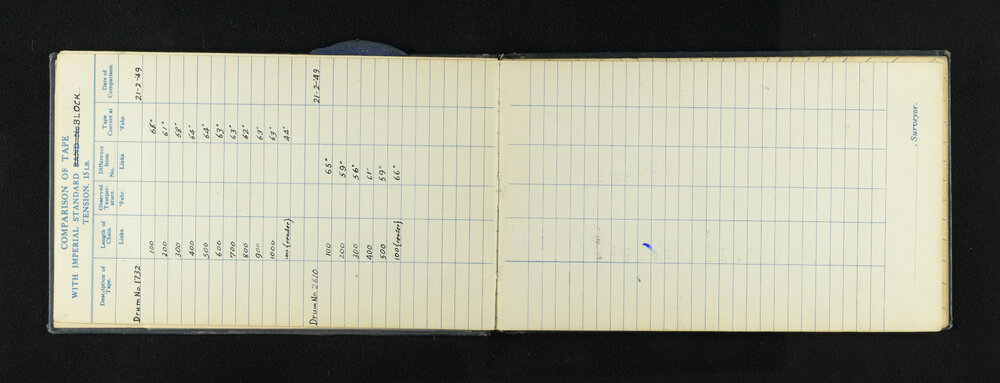 COMPARISON OF TAPE
WITH IMPERIAL STANDARD BAND No BLOCK
TENSION, 15 LB.
Description of Tape. Length of Chain. Observed Temperature. Difference from No. Tape Correct at Date of Comparison.
Links. °Fahr. Links. °Fahr.
Drum No. 1732 21-2-'49
100 68°
200 61°
300 58°
400 64°
500 64°
600 63°
700 63°
800 62°
900 63°
1000 63°
(center)
Drum No. 2610 21-2-'49
100 65°
200 59°
300 56°
400 61°
500 59°
100 (center) 66°
, Surveyor.